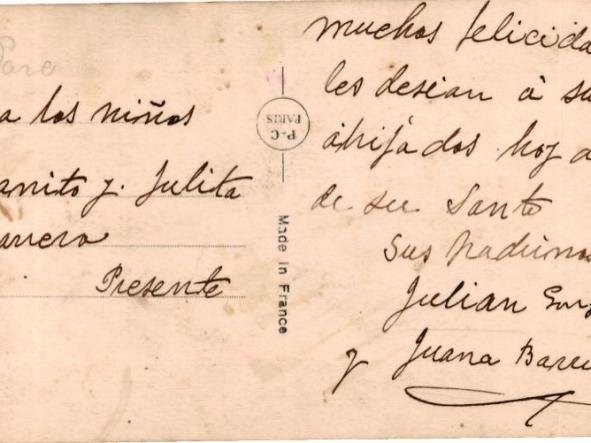 Para
a los niños
anito y. Julita
anero
Presente
P-C
PARIS
Made in France
muchos felicida
les desean á su
ahijados hoy d
de su Santo
Sus Padrinos
Julian
y Juana Barr